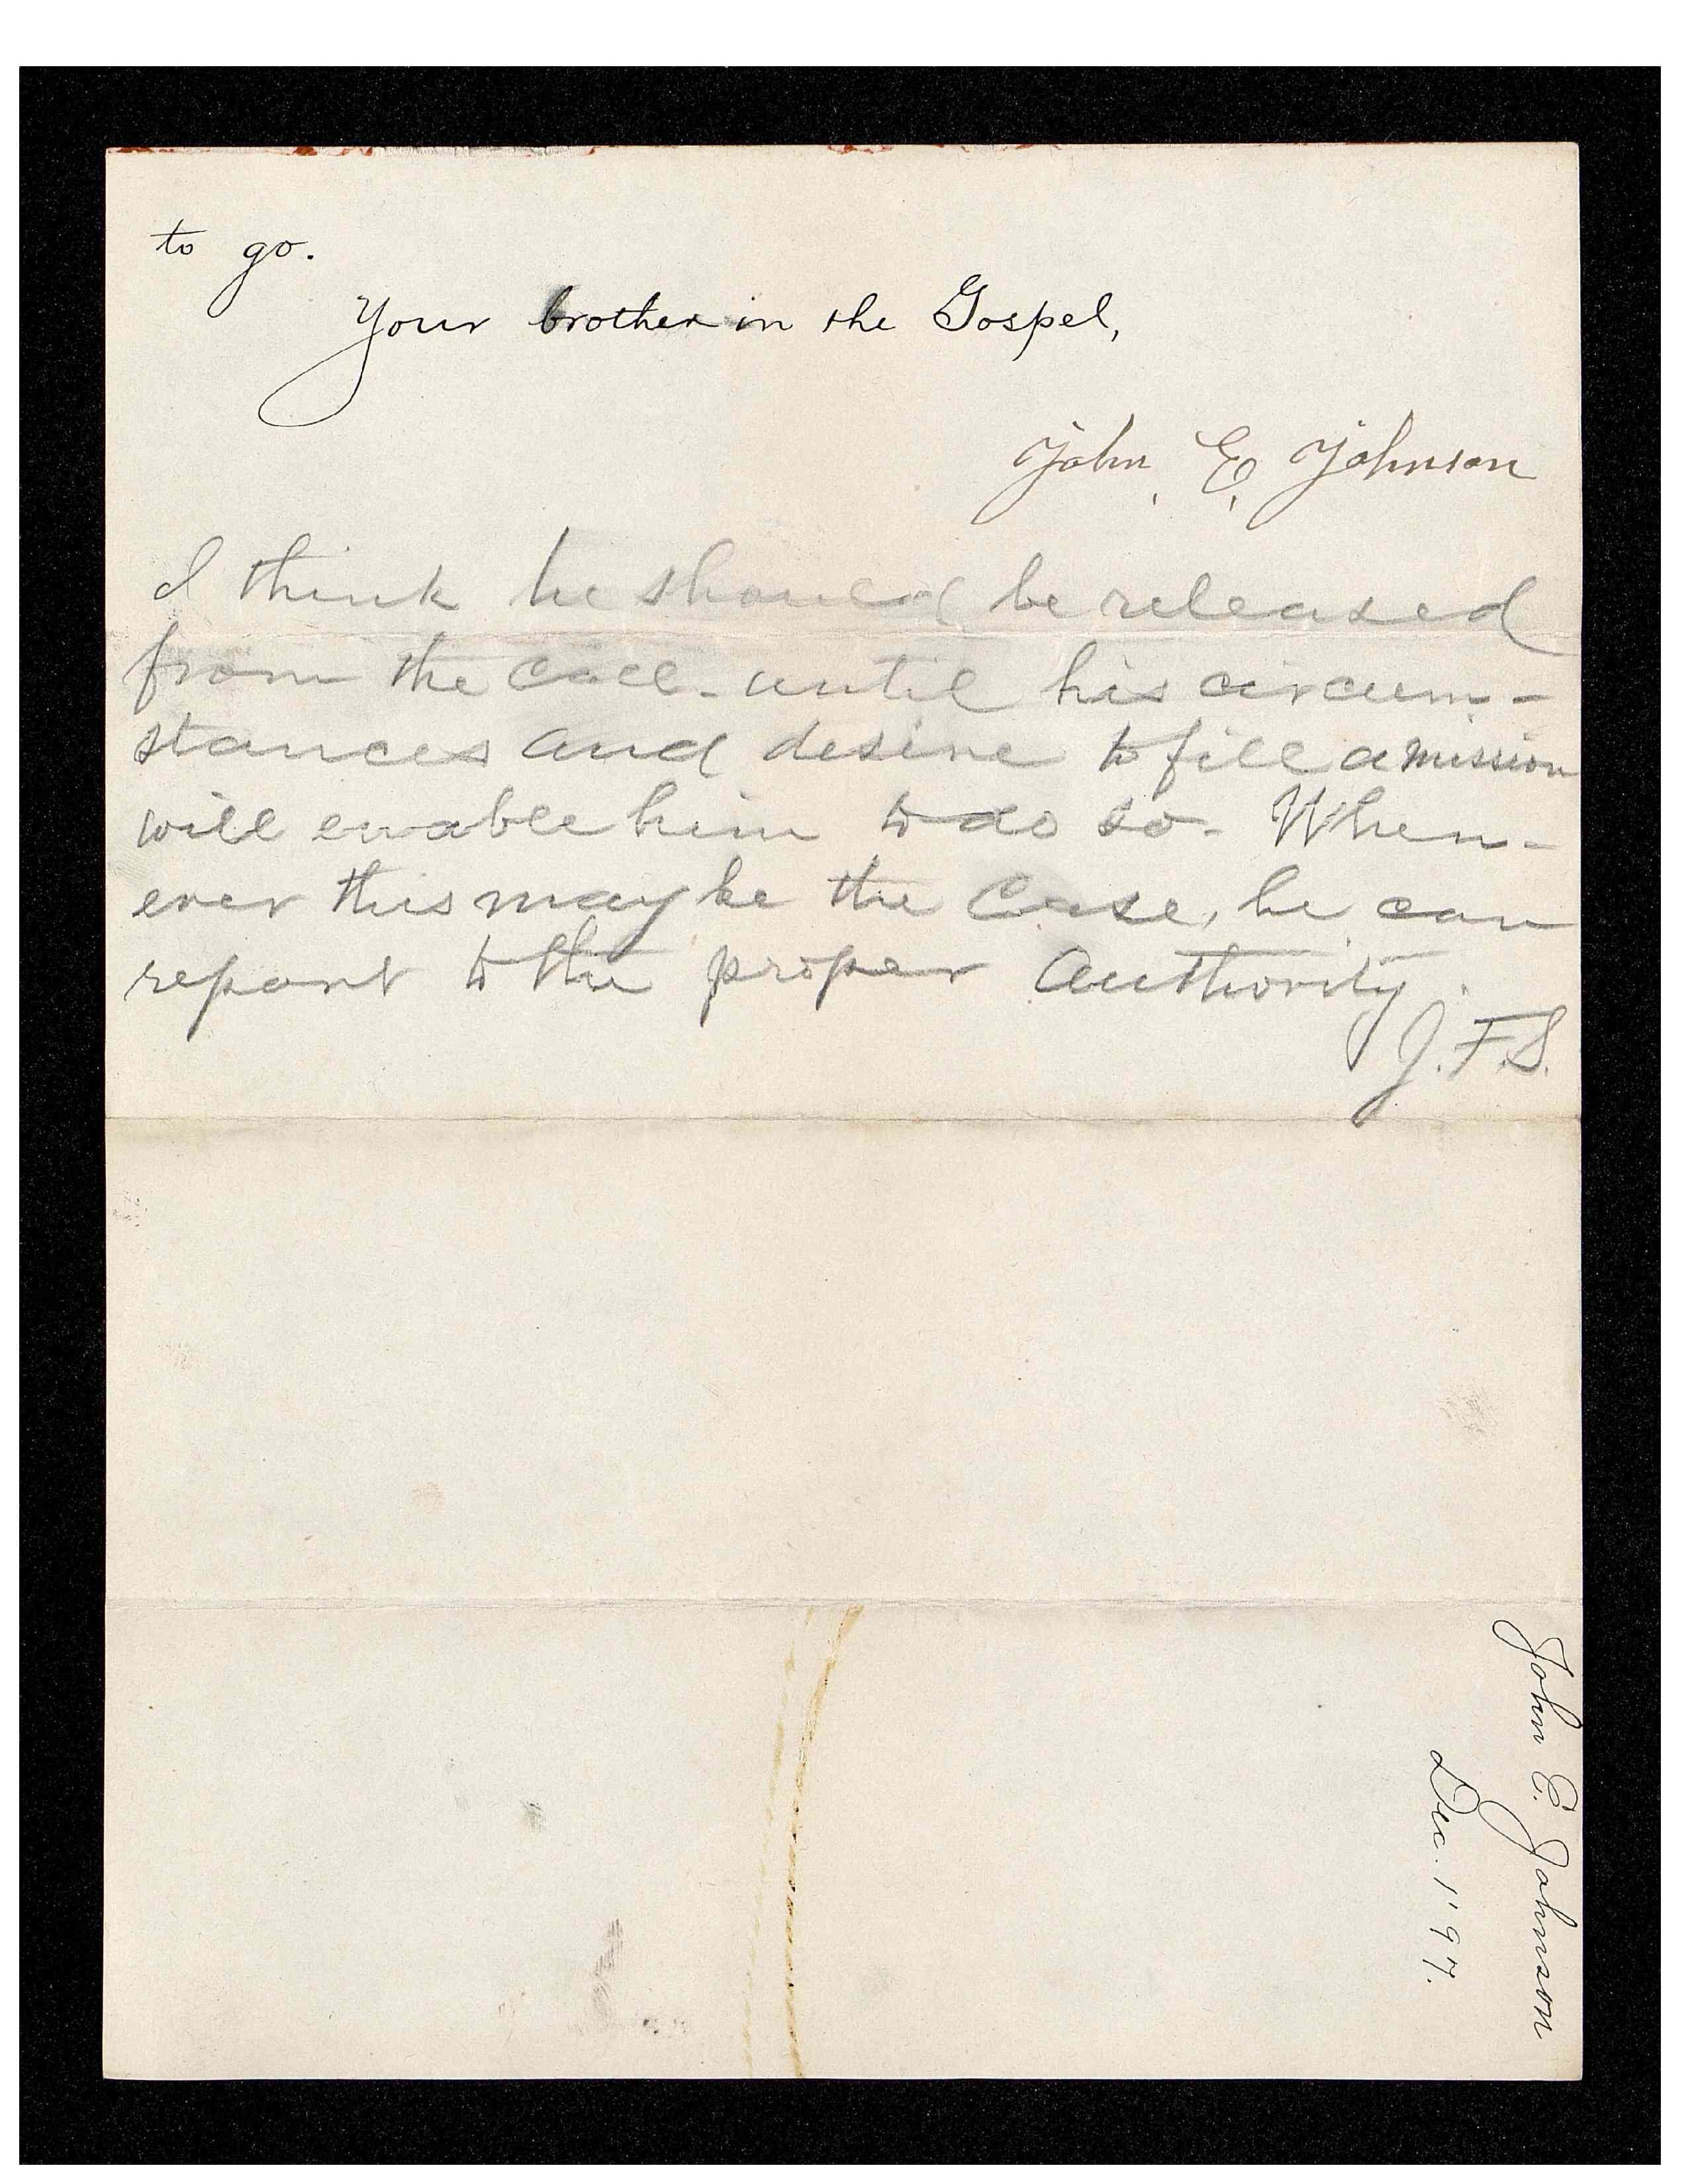 to go.
Your brother in the Gospel,
John, E, Johnson
I think he should be released
from the call - until his circum-
stances and desire to fill a mission
will enable him to do so - When-
ever this may be the Case, he can
report to the proper Authority.
J.F.S.
John E. Johnson
Dec. 1 '97.